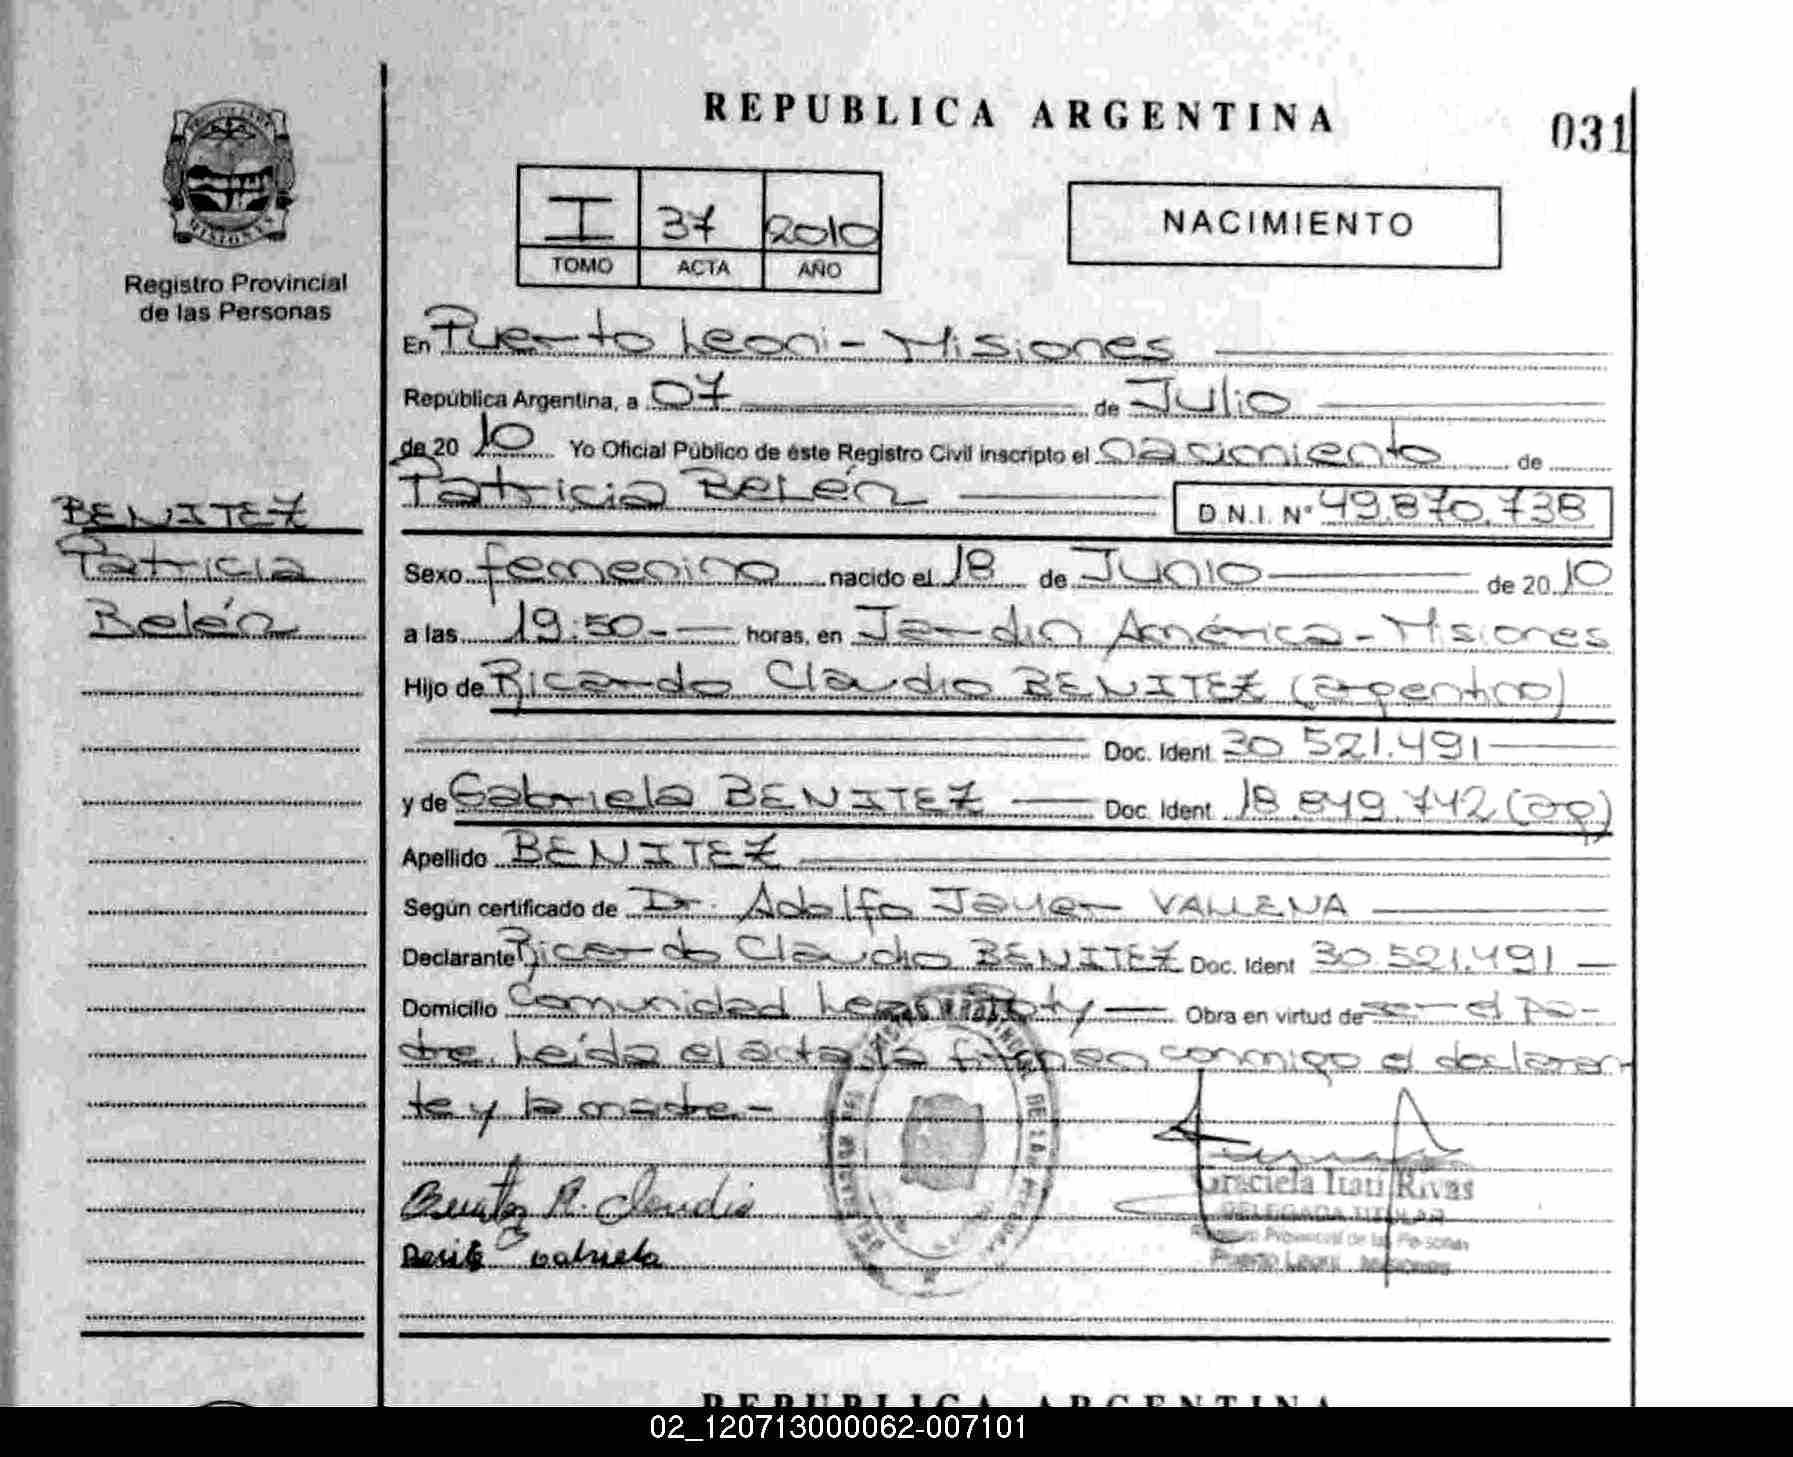 REPUBLICA ARGENTINA
031
MISIONES
Registro Provincial
de las Personas
I 37 2010
TOMO ACTA AÑO
NACIMIENTO
En Puerto Leoni - Misiones
República Argentina, a 07 de Julio
de 20 10 Yo Oficial Público de éste Registro Civil inscripto el nacimiento de
Patricia Belén
D.N.I. N° 49.870.738
BENITEZ
Patricia
Belén
Sexo femenino nacido el 18 de Junio de 20 10
a las 19:50 - horas, en Jardín América - Misiones
Hijo de Ricardo Claudio BENITEZ (argentino)
Doc. Ident 30 521.491
y de Gabriela BENITEZ Doc. Ident 18.849.742 (ag)
Apellido BENITEZ
Según certificado de Dr. Adolfo Javier VALLENA
Declarante Ricardo Claudio BENITEZ Doc. Ident 30.521.491
Domicilio Comunidad Obra en virtud de ser el pa-
dre. Leída el acta la firman conmigo el declaran-
te y la madre -
Benitez R. Claudio
Benite Gabriela
Graciela Itati Rivas
DELEGADA TITULAR
Registro Provincial de las Personas
Puerto Leoni Misiones
REPUBLICA ARGENTINA
02_120713000062-007101